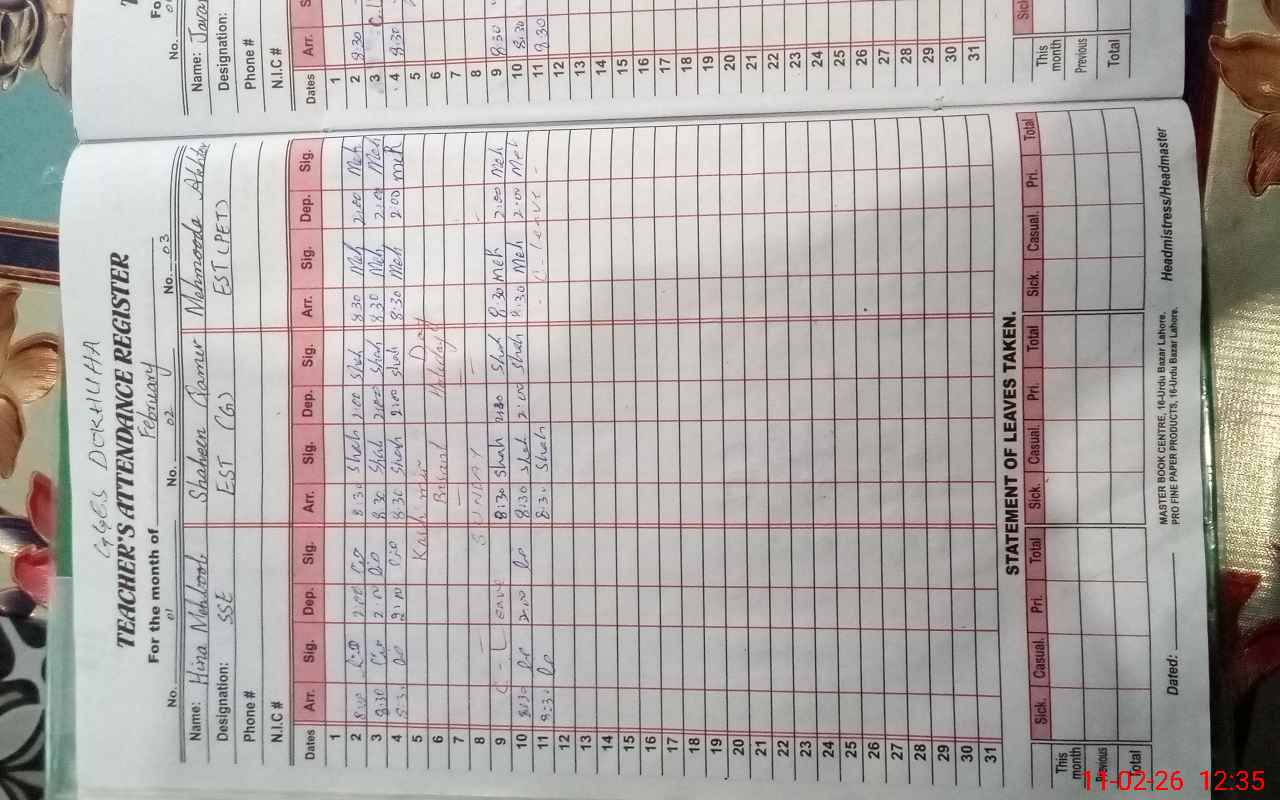 GGES DOKHUHA
TEACHER'S ATTENDANCE REGISTER
For the month of February
No. 01 No. 02 No. 03
Name: Hina Mehboob Shaheen Qamer Mehmooda Akhter
Designation: SSE EST (G) EST (PET)
Phone #
N.I.C #
Dates Arr. Sig. Dep. Sig. Arr. Sig. Dep. Sig. Arr. Sig. Dep. Sig.
1
2 8:30 2:00 8:30 Shah 2:00 Shah 8:30 Meh 2:00 Meh
3 8:30 2:00 8:30 Shah 2:00 Shah 8:30 Meh 2:00 Meh
4 8:30 2:00 8:30 Shah 2:00 Shah 8:30 Meh 2:00 Meh
5 Kashmir Day
6 Basant Holiday
7
8 SUNDAY
9 C - Leave 8:30 Shah 2:00 Shah 8:30 Meh 2:00 Meh
10 8:30 2:00 8:30 Shah 2:00 Shah 8:30 Meh 2:00 Meh
11 8:30 8:30 Shah - C - Leave -
12
13
14
15
16
17
18
19
20
21
22
23
24
25
26
27
28
29
30
31
STATEMENT OF LEAVES TAKEN.
Sick. Casual. Pri. Total Sick. Casual. Pri. Total Sick. Casual. Pri. Total
This month
Previous
Total
Dated:
MASTER BOOK CENTRE, 16-Urdu Bazar Lahore.
PRO FINE PAPER PRODUCTS, 16-Urdu Bazar Lahore.
Headmistress/Headmaster
No.
Name:
Designation:
Phone #
N.I.C #
Dates Arr.
1
2 8:30
3
4 8:30
5
6
7
8
9 8:30
10 8:30
11 8:30
12
13
14
15
16
17
18
19
20
21
22
23
24
25
26
27
28
29
30
31
Sick
This month
Previous
Total
11-02-26 12:35